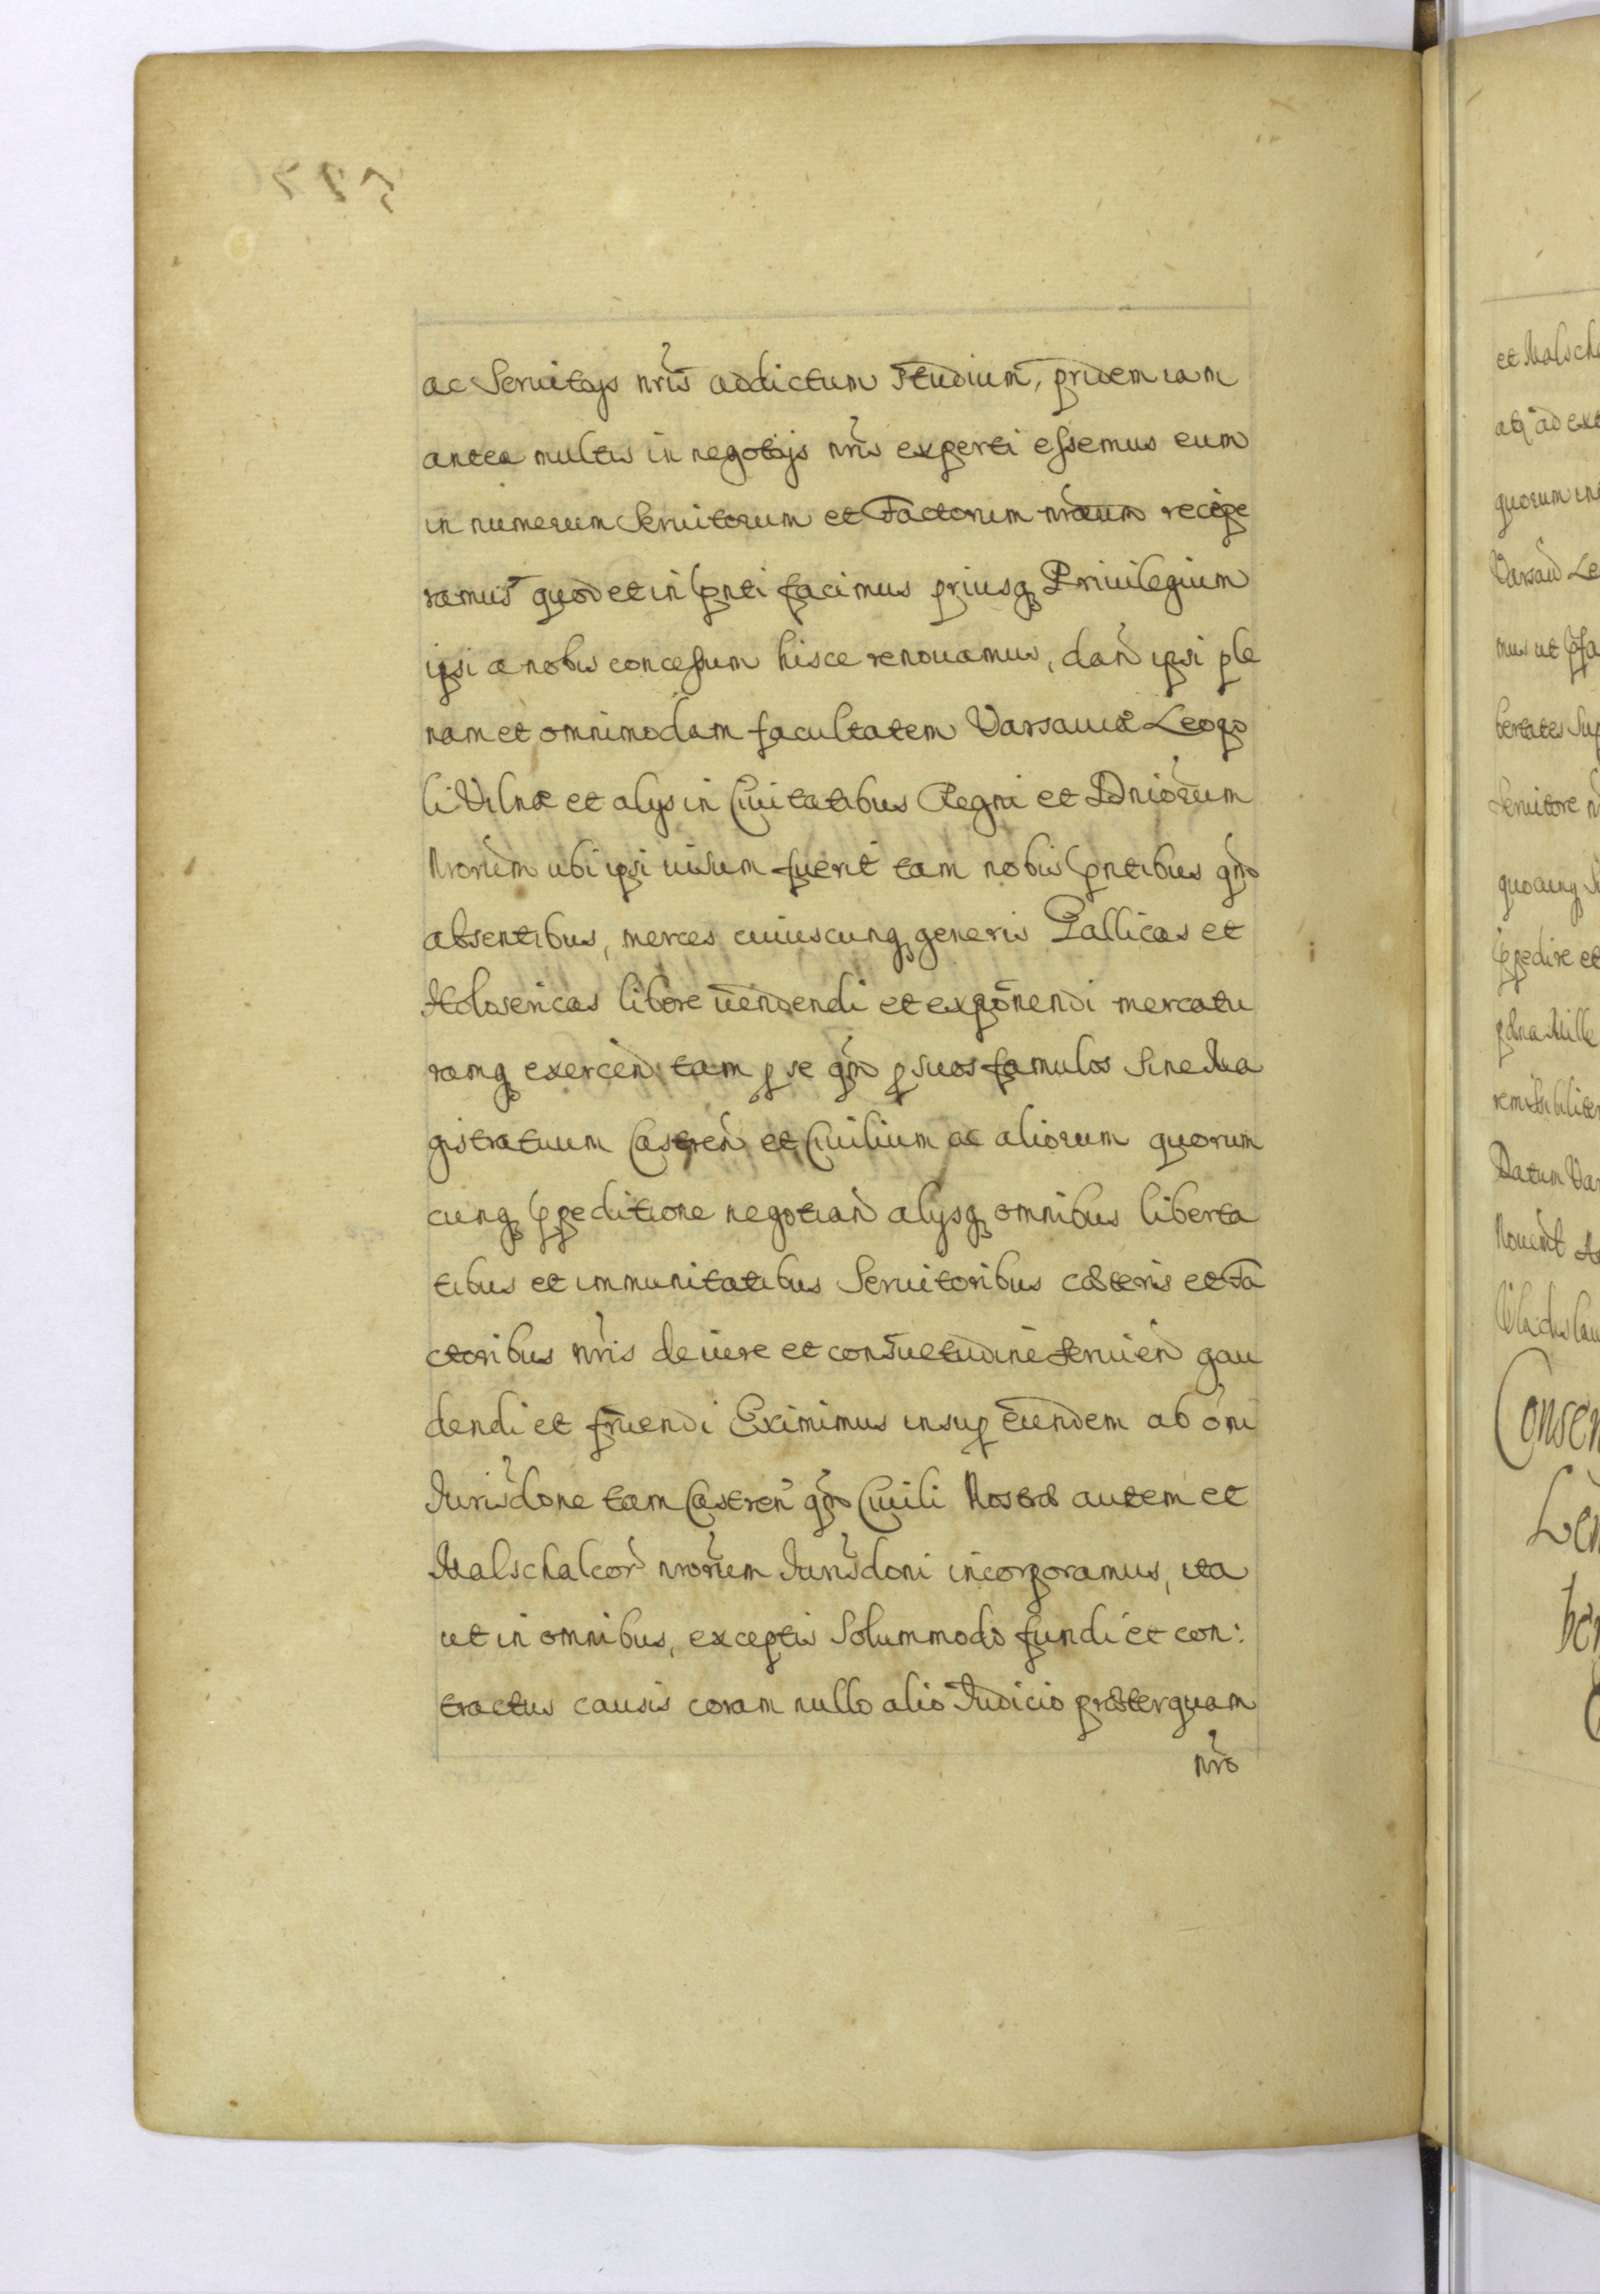 ac Seruitijs nris addictum studium, pridem iam
antea multis in negotijs nris experti essemus eum
in numerum Seruitorum et Factorum nrorum recipe
ramus quod et in pnti facimus priusq Priuilegium
ipsi a nobis concessum hisce renouamus, dan ipsi ple
nam et omnimodam facultatem Varsauiæ Leopo
li Vilnæ et alijs in Ciuitatibus Regni et Dniorum
Nrorum ubi ipsi uisum fuerit tam nobis pntibus qm
absentibus, merces cuiuscunq generis Gallicas et
Holosericas libere uendendi et exponendi mercatu
ramq exercen tam p se qm p suos famulos Sine Ma
gistratuum Castren et Ciuilium ac aliorum quorum
cunq ppeditione negotian alijsq omnibus liberta
tibus et immunitatibus Seruitoribus cæteris et Fa
ctoribus nris de iure et consuetudine seruien gau
dendi et fruendi Eximimus insup eundem ab oni
Jurisdone tam Castren qm Ciuili Nostræ autem et
Malschalcor nrorum Jurisdoni incorporamus, ita
ut in omnibus, exceptis Solummodo fundi et con:
tractus causis coram nullo alio Judicio præterquam
nro
et Malscha
atq ad ext
quorum
Varsau Le
mus ut
bertates Sup
Seruitore
quocunq
ppedire et
pæna Mille
remissibiliter
Datum Var
Nouem
Vladislau
Consen